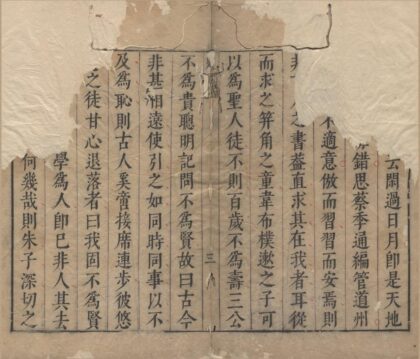 云閑過日月卽是天地
錯思蔡季通編管道州
不適意倣而習習而安焉則
非
之書葢直求其在我者耳從
而求之笄角之童韋布樸遬之子可
以爲聖人徒不則百歲不爲壽三公
三
不爲貴聰明記問不爲賢故曰古今
非甚相遠使引之如同時同事以不
及爲恥則古人奚啻接席連步彼悠
之徒甘心退落者曰我固不爲賢
學爲人卽已非人其去
何幾哉則朱子深切之